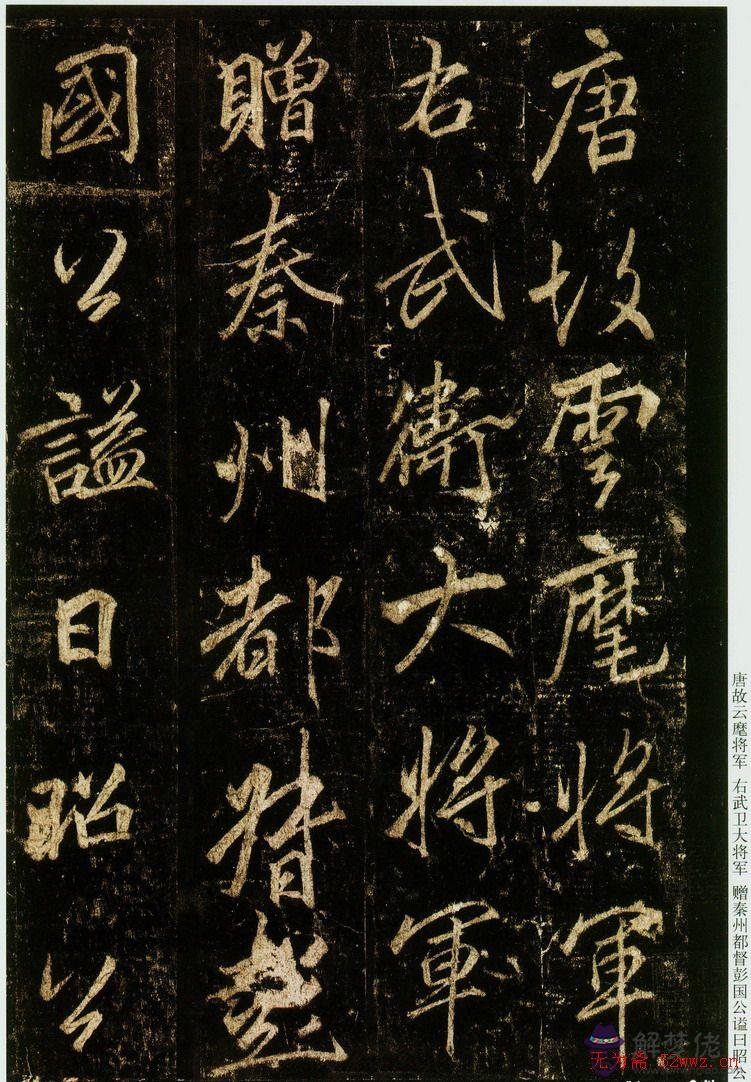 唐故雲麾將軍
右武衛大將軍
贈秦州都督彭
國公謚曰昭公
唐故云麾将军 右武卫大将军 赠秦州都督彭国公谥曰昭公
解梦佬
无为斋 52wwz.cn